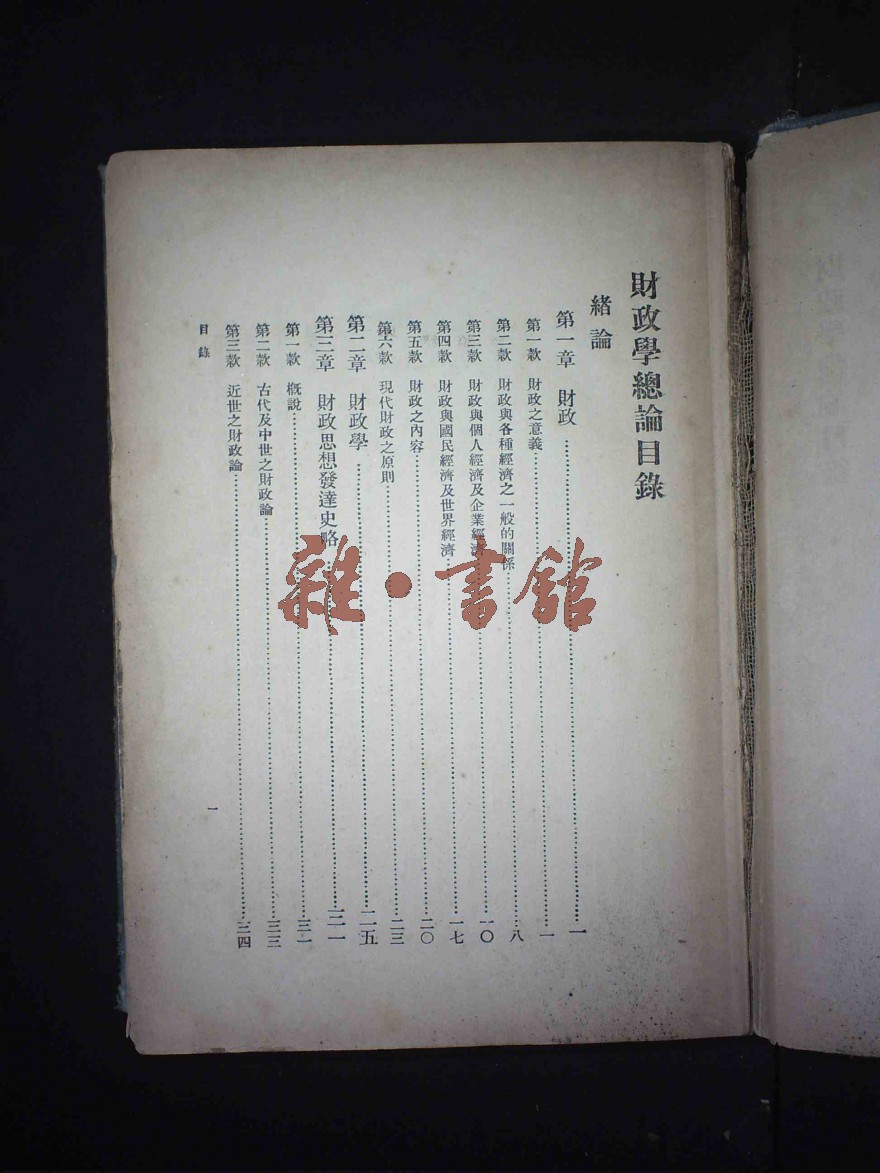 財政學總論目錄
緒論
第一章 財政……一
第一款 財政之意義……一
第二款 財政與各種經濟之一般的關係……八
第三款 財政與個人經濟及企業經濟……一〇
第四款 財政與國民經濟及世界經濟……一七
第五款 財政之內容……二〇
第六款 現代財政之原則……二三
第二章 財政學……二五
第三章 財政思想發達史略……三一
第一款 概說……三一
第二款 古代及中世之財政論……三三
第三款 近世之財政論……三四
目錄
一
雜·書館